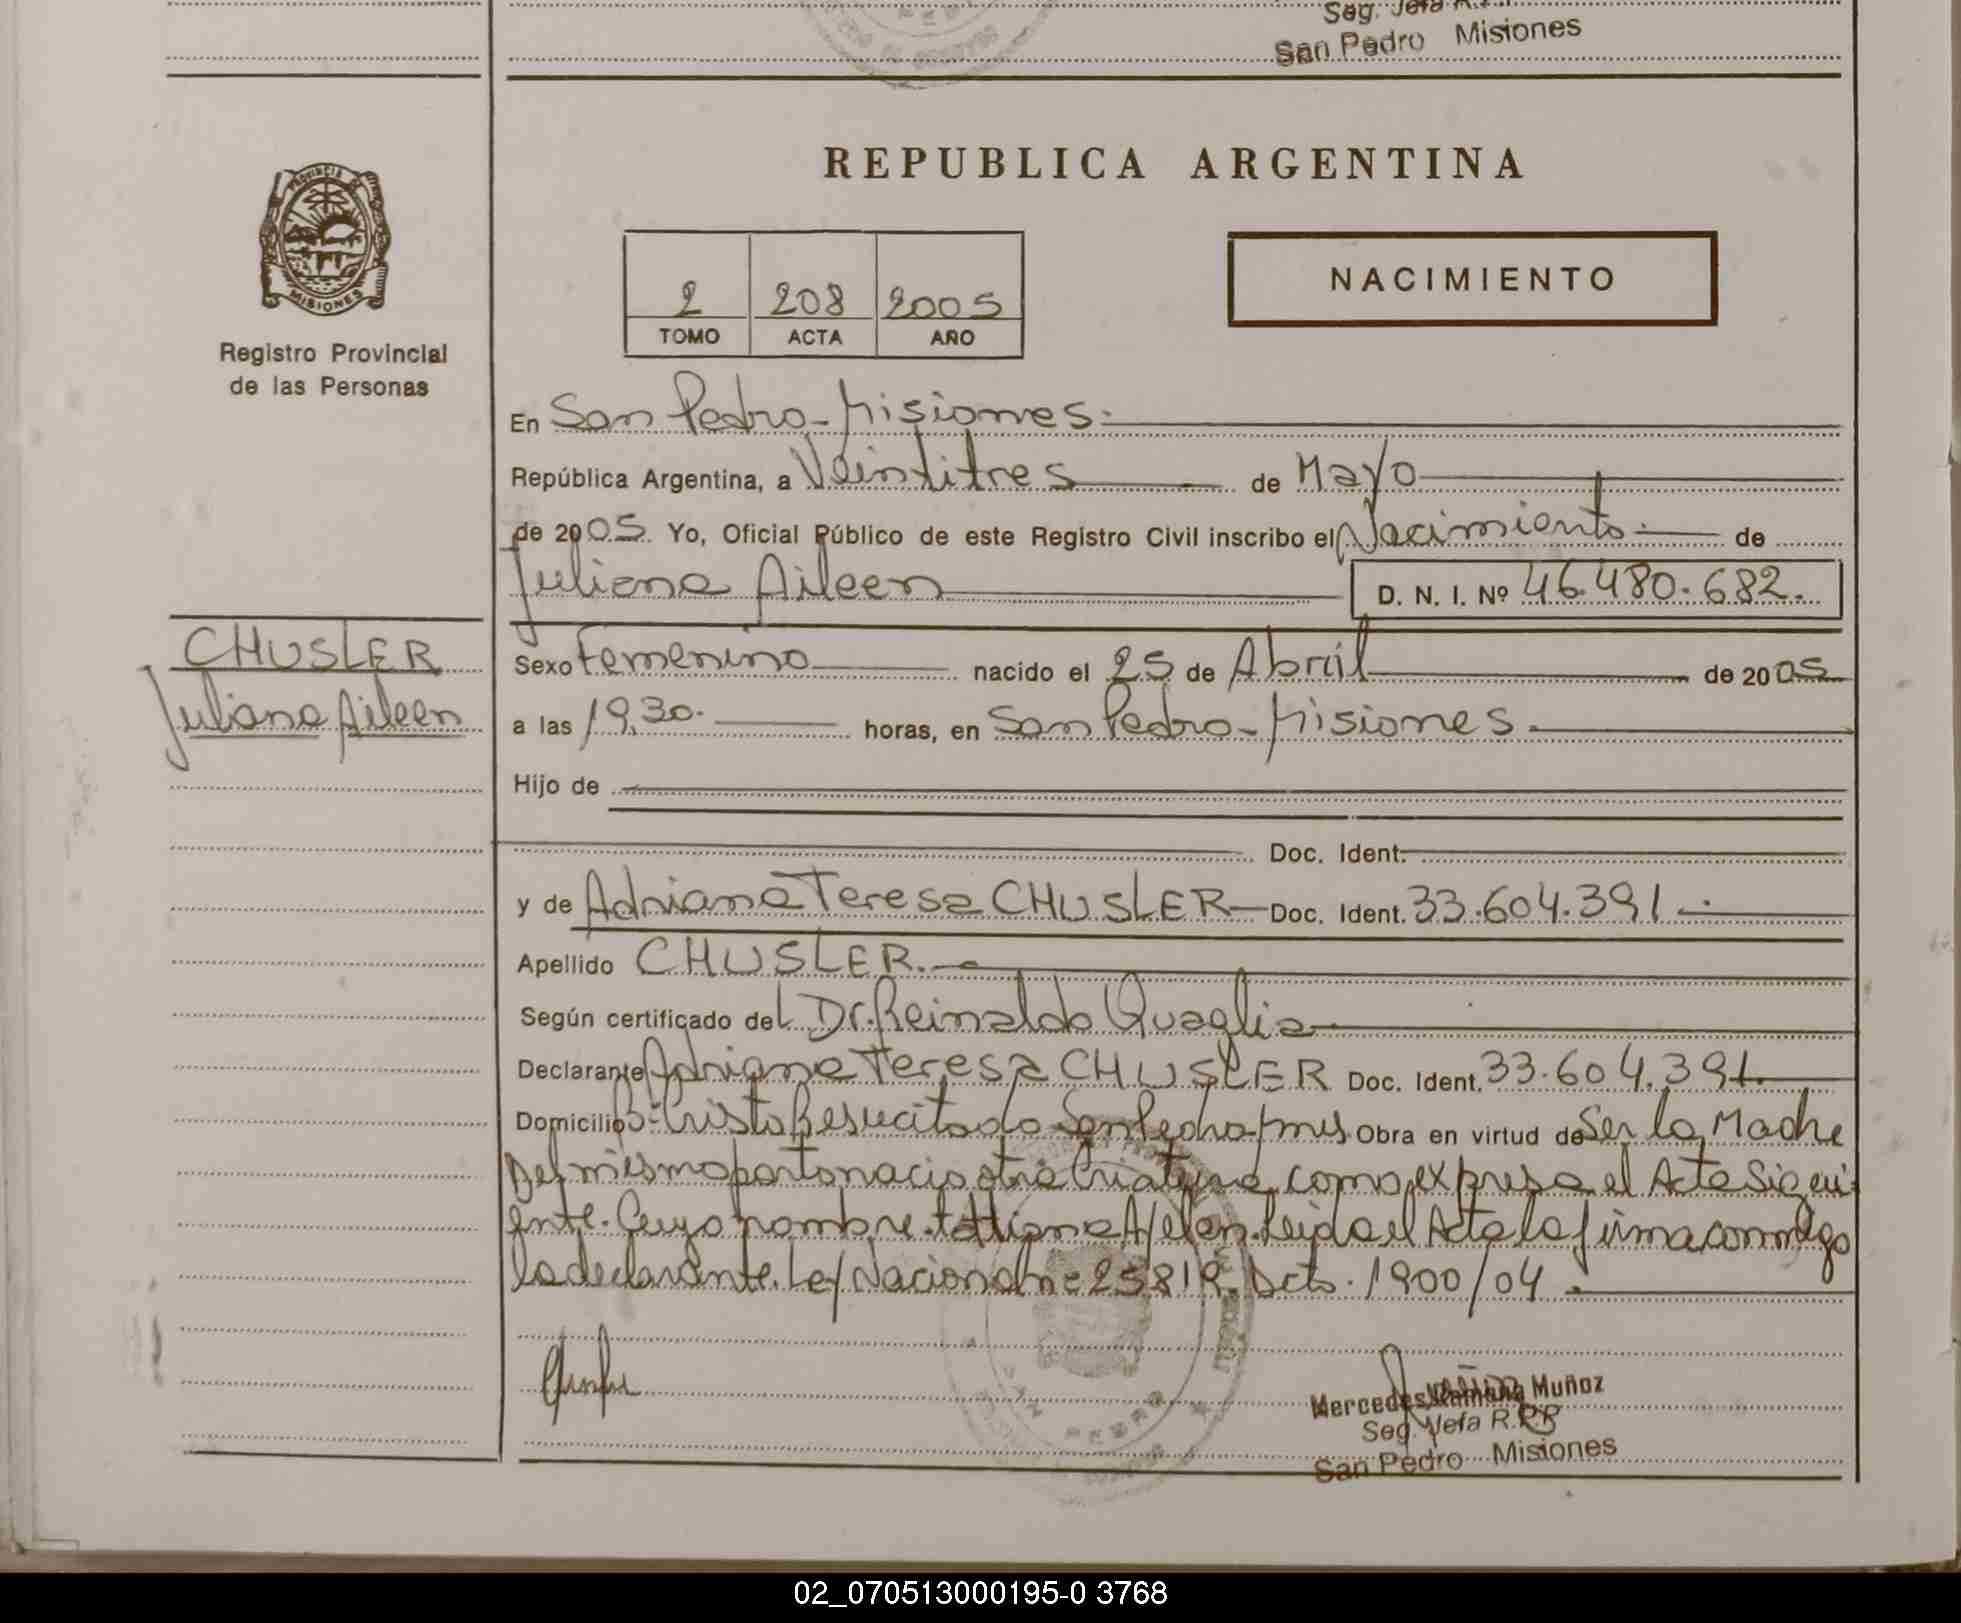 Seg. Jefa R.P.P.
San Pedro Misiones
PROVINCIA DE
MISIONES
Registro Provincial
de las Personas
REPUBLICA ARGENTINA
2 208 2005
TOMO ACTA AÑO
NACIMIENTO
En San Pedro - Misiones.
República Argentina, a Veintitres de Mayo
de 2005. Yo, Oficial Público de este Registro Civil inscribo el Nacimiento de
Juliana Aileen D. N. I. Nº 46.480.682.
CHUSLER
Juliana Aileen
Sexo Femenino nacido el 25 de Abril de 2005
a las 19,30. horas, en San Pedro - Misiones.
Hijo de
Doc. Ident.
y de Adriana Teresa CHUSLER Doc. Ident. 33.604.391
Apellido CHUSLER.
Según certificado del Dr. Reinaldo Quaglia
Declarante Adriana Teresa CHUSLER Doc. Ident. 33.604.391.
Domicilio Bº Cristo Resucitado San Pedro, Mnes. Obra en virtud de Ser la Madre
Del mismo parto nacio otra Criatura, como expresa el Acta Sigui-
ente. Cuyo nombre. Tattiana Aylen. Leida el Acta la firma conmigo
la declarante. Ley Nacional nº 25819. Dcto. 1900/04.
Mercedes Ramona Muñoz
Seg. Jefa R.P.P
San Pedro Misiones
02_070513000195-0 3768